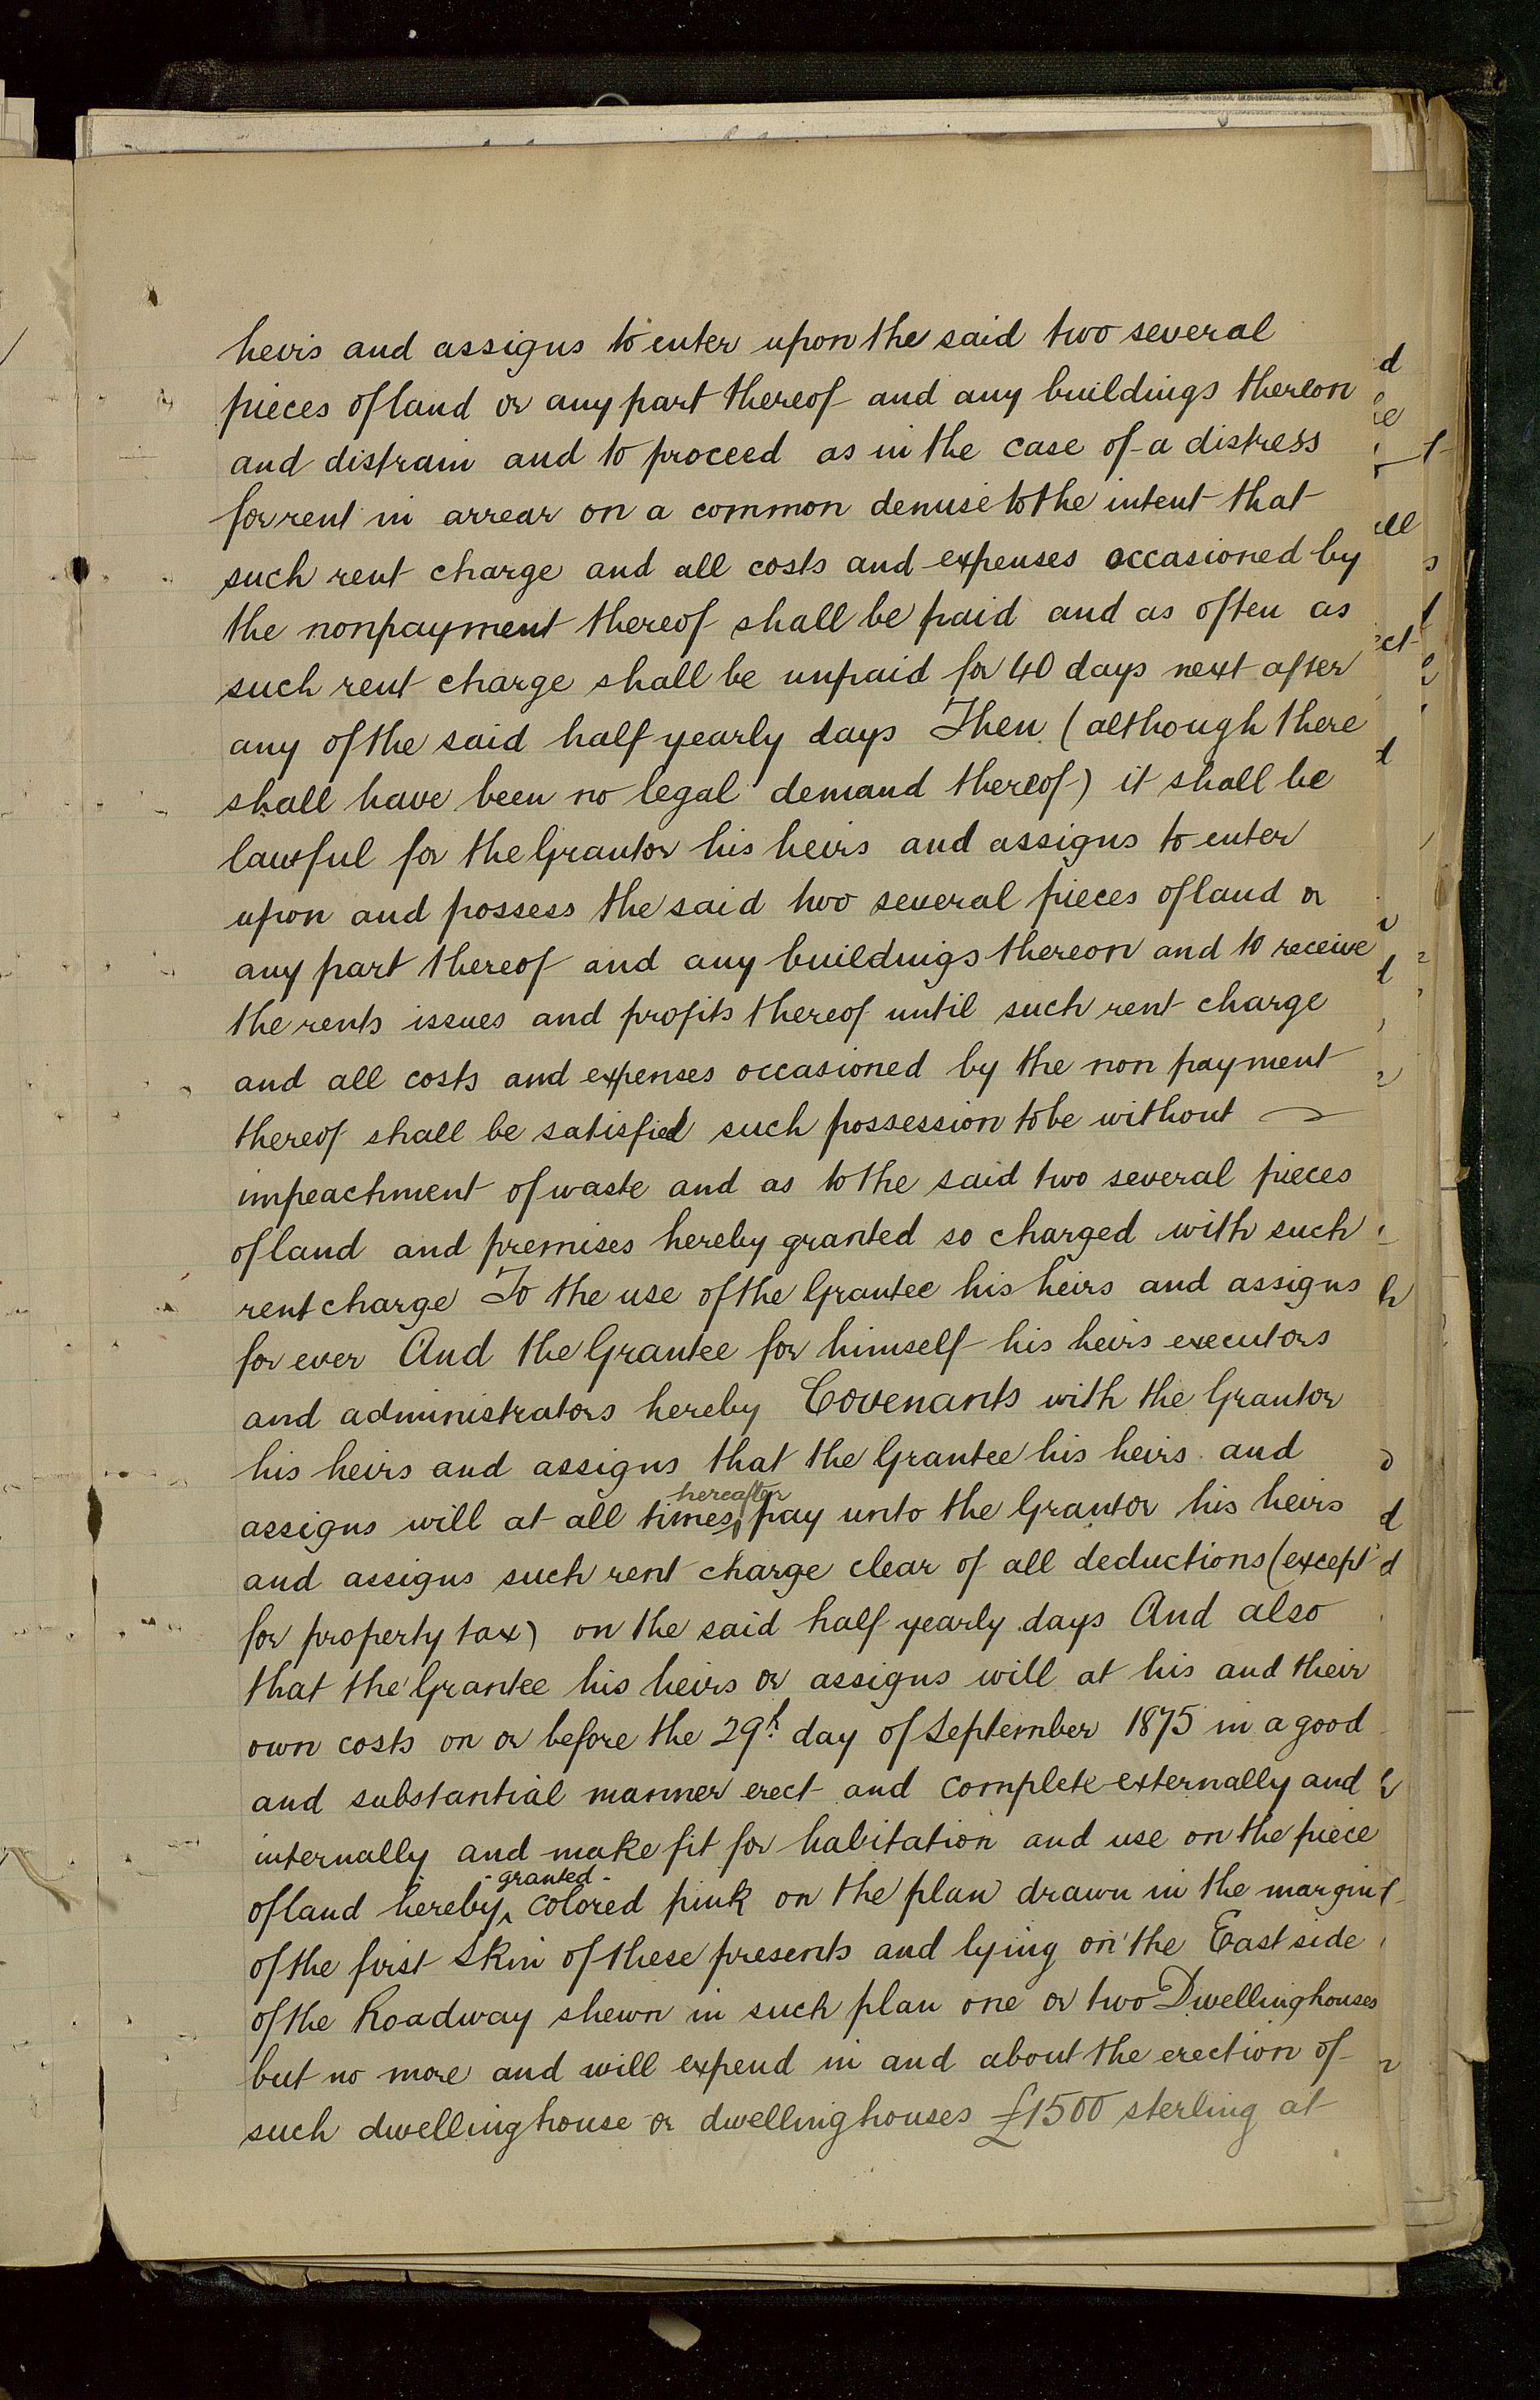 heirs and assigns to enter upon the said two several
pieces of land or any part thereof and any buildings thereon
and distrain and to proceed as in the case of a distress
for rent in arrear on a common demise to the intent that
such rent charge and all costs and expenses occasioned by
the nonpayment thereof shall be paid and as often as
such rent charge shall be unpaid for 40 days next after
any of the said half yearly days Then (although there
shall have been no legal demand thereof) it shall be
lawful for the Grantor his heirs and assigns to enter
upon and possess the said two several pieces of land or
any part thereof and any buildings thereon and to receive
the rents issues and profits thereof until such rent charge
and all costs and expenses occasioned by the non payment
thereof shall be satisfied such possession to be without
impeachment of waste and as to the said two several pieces
of land and premises hereby granted so charged with such
rent charge To the use of the Grantee his heirs and assigns
for ever And the Grantee for himself his heirs executors
and administrators hereby Covenants with the Grantor
his heirs and assigns that the Grantee his heirs and
assigns will at all times hereafter pay unto the Grantor his heirs
and assigns such rent charge clear of all deductions (except
for property tax) on the said half yearly days And also
that the Grantee his heirs or assigns will at his and their
own costs on or before the 29th day of September 1875 in a good
and substantial manner erect and complete externally and
internally and make fit for habitation and use on the piece
of land hereby granted colored pink on the plan drawn in the margin
of the first Skin of these presents and lying on the East side
of the Roadway shewn in such plan one or two Dwellinghouses
but no more and will expend in and about the erection of
such dwellinghouse or dwellinghouses £1500 sterling at